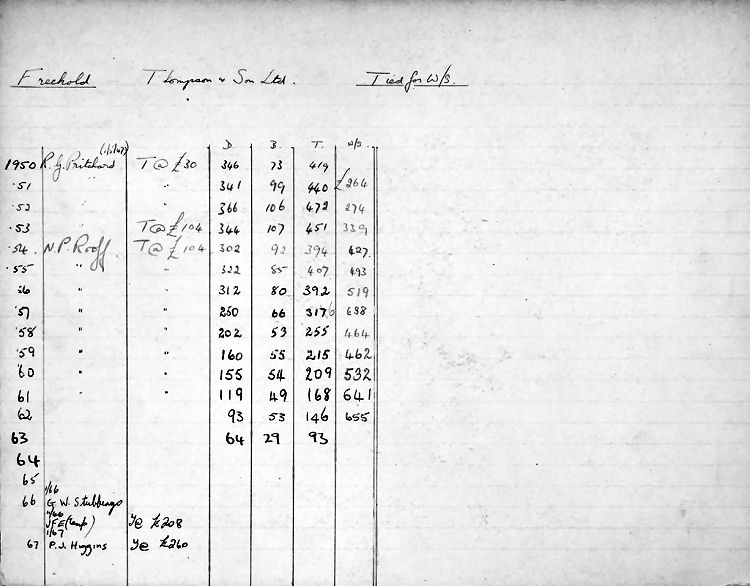 Freehold Thompson & Son Ltd. Tied for W/S.
(1/1/47) D. B. T. W/S.
1950 R. G. Pritchard T @ £30 346 73 419
'51 " " 341 99 440 £264
'52 " " 366 106 472 274
'53 " T @ £104 344 107 451 339
'54 N. P. Rooff T @ £104 302 92 394 427
'55 " " 322 85 407 493
56 " " 312 80 392 519
'57 " " 250 66 316
'58 " " 202 53 255 464
'59 " " 160 55 215 462
'60 " " 155 54 209 532
61 " " 119 49 168 641
62 93 53 146 655
63 64 29 93
64
65
1/66
66 G. W. Stubbings
JFE (temp) Y@ £208
1/67
67 P. J. Huggins Y@ £260